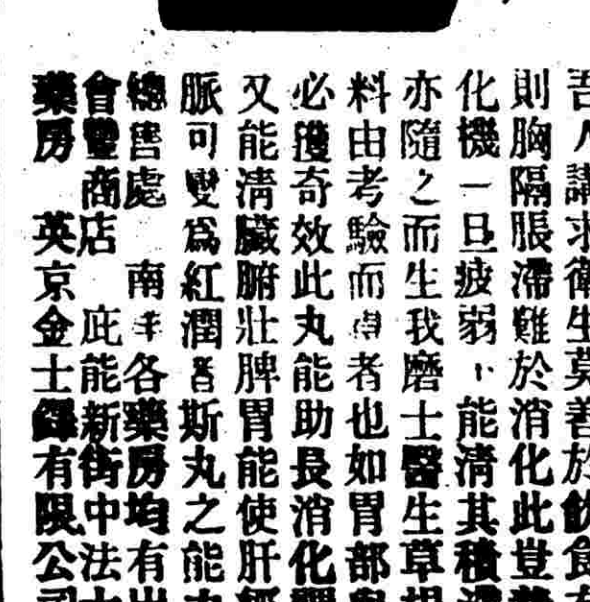 吾人講求衛生莫善於飲食
則胸隔脹滯難於消化此豈
化機一旦疲弱不能清其積滯
亦隨之而生我磨士醫生草根
料由考驗而得者也如胃部與
必獲奇效此丸能助長消化
又能清臟腑壯脾胃能使肝經
脈可變為紅潤者斯丸之能
總售處 南洋各藥房均有出
會豐商店 庇能新街中法
藥房 英京金士鐸有限公司